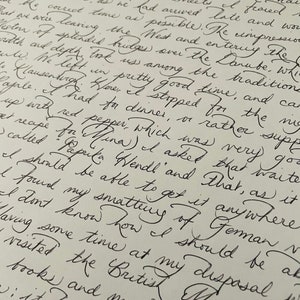 the correct time as possible. The impression
was leaving the West and entering the
of splendid bridges over the Danube, wh
width and depth, took us among the tradition
We left in pretty good time, and ca
Klausenburgh. Here I stopped for the nig
I had for dinner, or rather supp
up with red pepper, which was very good
get recipe for Mina.) I asked the waite
called "Paprika Hendl" and that, as it
I should be able to get it anywhere
I found my smattering of German v
I don't know how I should be a
Having some time at my disposal
visited the British M
books and m